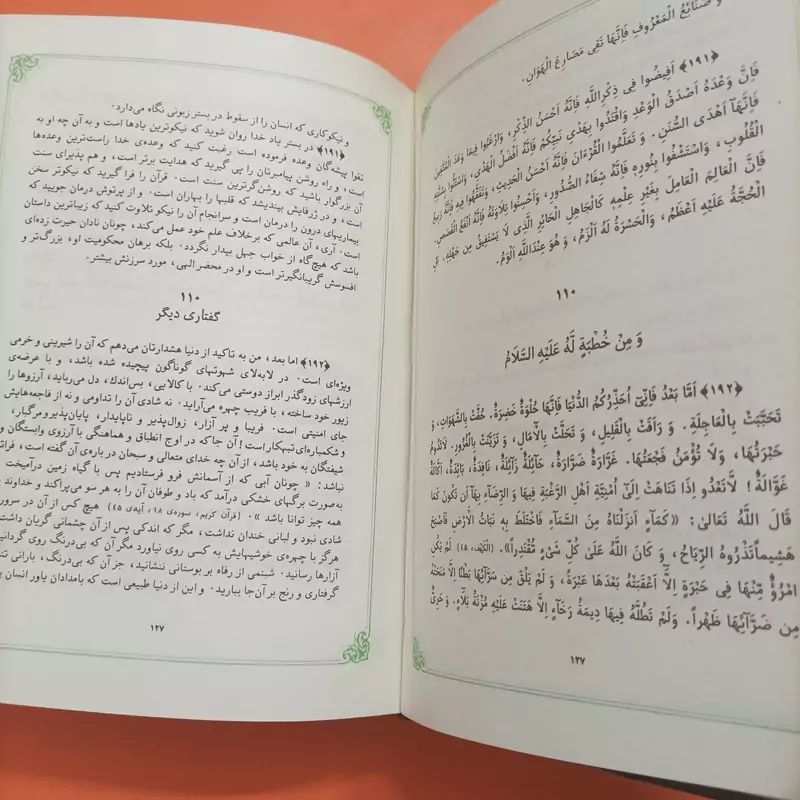 وَ صَنَائِعُ الْمَعْرُوفِ فَاِنَّهَا تَقِی مَصَارِعَ الْهَوَانِ.
﴿۱۹۱﴾ اَفِیضُوا فِی ذِکْرِاللَّهِ فَاِنَّهُ اَحْسَنُ الذِّکْرِ، وَارْغَبُوا فِیمَا وَعَدَ الْمُتَّقِینَ
فَاِنَّ وَعْدَهُ اَصْدَقُ الْوَعْدِ وَاقْتَدُوا بِهَدْیِ نَبِیِّکُمْ فَاِنَّهُ اَفْضَلُ الْهَدْیِ، وَاسْتَنُّوا بِسُنَّتِهِ
فَاِنَّهَا اَهْدَی السُّنَنِ. وَ تَعَلَّمُوا الْقُرْءَانَ فَاِنَّهُ اَحْسَنُ الْحَدِیثِ، وَتَفَقَّهُوا فِیهِ فَاِنَّهُ رَبِیعُ
الْقُلُوبِ، وَاسْتَشْفُوا بِنُورِهِ فَاِنَّهُ شِفَاءُ الصُّدُورِ، وَاَحْسِنُوا تِلَاوَتَهُ فَاِنَّهُ اَنْفَعُ الْقَصَصِ.
فَاِنَّ الْعَالِمَ الْعَامِلَ بِغَیْرِ عِلْمِهِ کَالْجَاهِلِ الْحَائِرِ الَّذِی لَا یَسْتَفِیقُ مِنْ جَهْلِهِ. بَلِ
الْحُجَّةُ عَلَیْهِ اَعْظَمُ، وَالْحَسْرَةُ لَهُ اَلْزَمُ، وَ هُوَ عِنْدَاللَّهِ اَلْوَمُ.
۱۱۰
وَ مِنْ خُطْبَةٍ لَهُ عَلَیْهِ السَّلَامُ
﴿۱۹۲﴾ اَمَّا بَعْدُ فَاِنِّی اُحَذِّرُکُمُ الدُّنْیَا فَاِنَّهَا حُلْوَةٌ خَضِرَةٌ. حُفَّتْ بِالشَّهَوَاتِ، وَ
تَحَبَّبَتْ بِالْعَاجِلَةِ. وَ رَاقَتْ بِالْقَلِیلِ، وَ تَحَلَّتْ بِالْآمَالِ، وَ تَزَیَّنَتْ بِالْغُرُورِ. لَاتَدُومُ
حَبْرَتُهَا، وَلَا تُؤْمَنُ فَجْعَتُهَا. غَرَّارَةٌ ضَرَّارَةٌ، حَائِلَةٌ زَائِلَةٌ، نَافِدَةٌ، بَائِدَةٌ، اَکَّالَةٌ
غَوَّالَةٌ! لَاتَعْدُو اِذَا تَنَاهَتْ اِلَی اُمْنِیَّةِ اَهْلِ الرَّغْبَةِ فِیهَا وَ الرِّضَاءِ بِهَا اَن تَکُونَ کَمَا
قَالَ اللَّهُ تَعَالَی: «کَمَاءٍ اَنزَلْنَاهُ مِنَ السَّمَاءِ فَاخْتَلَطَ بِهِ نَبَاتُ الْاَرْضِ فَاَصْبَحَ
هَشِیماً تَذْرُوهُ الرِّیَاحُ، وَ کَانَ اللَّهُ عَلَی کُلِّ شَیْءٍ مُقْتَدِراً». (اَلْکَهْف، ۴۵) لَمْ یَکُنِ
امْرُؤٌ مِّنْهَا فِی حَبْرَةٍ اِلَّا اَعْقَبَتْهُ بَعْدَهَا عَبْرَةً، وَ لَمْ یَلْقَ مِن سَرَّائِهَا بَطْنًا اِلَّا مَنَحَتْهُ
مِن ضَرَّائِهَا ظَهْراً. وَلَمْ تَطُلَّهُ فِیهَا دِیمَةُ رَخَاءٍ اِلَّا هَتَنَتْ عَلَیْهِ مُزْنَةُ بَلَاءٍ. وَ حَرِیٌّ
۱۲۷
و نیکوکاری که انسان را از سقوط در بستر زبونی نگاه می‌دارد.
﴿۱۹۱﴾ در بستر یاد خدا روان شوید که نیکوترین یادها است و به آن چه او به
تقوا پیشه‌گان وعده فرموده است رغبت کنید که وعده‌ی خدا راست‌ترین وعده‌ها
است، و راه روشن پیامبرتان را پی گیرید که هدایت برتر است، و هم پذیرای سنت
آن بزرگوار باشید که روشن‌گرترین سنت است. قرآن را فرا گیرید که نیکوتر سخن
است، و در ژرفایش بیندیشید که قلبها را بهاران است. و از پرتوش درمان جویید که
بیماریهای درون را درمان است و سرانجام آن را نیکو تلاوت کنید که زیباترین داستان
است. آری، آن عالمی که برخلاف علم خود عمل می‌کند، چونان نادان حیرت زده‌ای
باشد که هیچ‌گاه از خواب جهل بیدار نگردد. بلکه برهان محکومیت او، بزرگ‌تر و
افسوسش گریبانگیرتر است و او در محضر الهی، مورد سرزنش بیشتر.
۱۱۰
گفتاری دیگر
﴿۱۹۲﴾ اما بعد، من به تاکید از دنیا هشدارتان می‌دهم که آن را شیرینی و خرمی
ویژه‌ای است. در لابه‌لای شهوتهای گوناگون پیچیده شده باشد، و با عرضه‌ی
ارزشهای زودگذر ابراز دوستی می‌کند. با کالایی، بس‌اندک، دل می‌رباید، آرزوها را
زیور خود ساخته، با فریب چهره می‌آراید. نه شادی آن را تداومی و نه از فاجعه‌هایش
جای امنیتی است. فریبا و پر آزار، زوال‌پذیر و ناپایدار، پایان‌پذیر و مرگبار،
و شکمباره‌ای تبهکار است! آن جا که در اوج انطباق و هماهنگی با آرزوی وابستگان و
شیفتگان به خود باشد، از آن چه خدای متعالی و سبحان در باره‌ی آن گفته است، فراتر
نباشد: «چونان آبی که از آسمانش فرو فرستادیم پس با گیاه زمین درآمیخت
به‌صورت برگهای خشکی درآمد که باد و طوفان آن را به هر سو می‌پراکند و خداوند
همه چیز توانا باشد». (قرآن کریم، سوره‌ی ۱۸، آیه‌ی ۴۵) هیچ کس از آن در سرور
شادی نبود و لبانی خندان نداشت، مگر که اندکی پس از آن چشمانی گریان داشت
هرگز با چهره‌ی خوشیهایش به کسی روی نیاورد مگر آن که بی‌درنگ پشت
آزارها رسانید. شبنمی از رفاه بر بوستانی ننشانید، جز آن که بی‌درنگ، بارانی
گرفتاری و رنج بر آن‌جا ببارید. و این از دنیا طبیعی است که بامدادان یاور انسان
۱۲۷